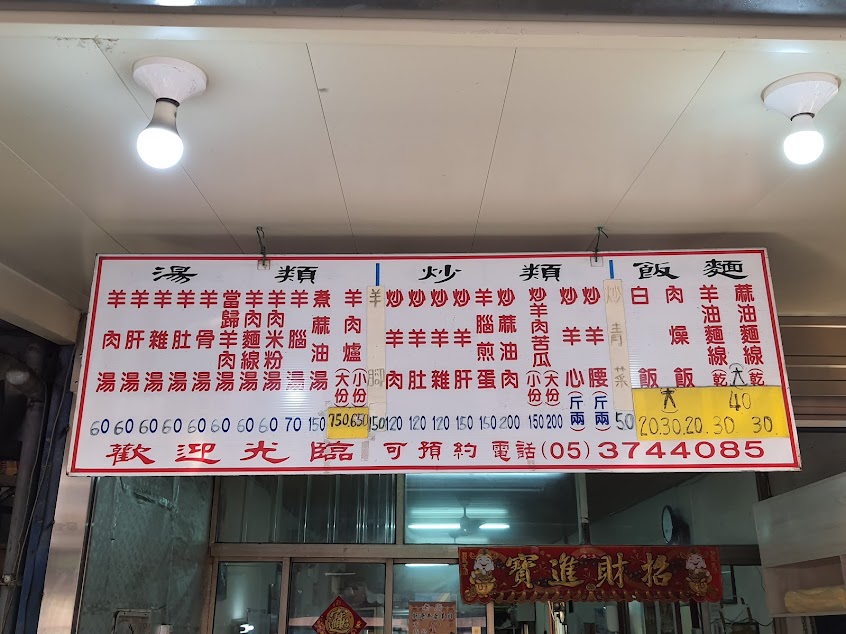 湯類　炒類　飯麵
羊肉湯 60
羊肝湯 60
羊雜湯 60
羊肚湯 60
羊骨湯 60
當歸羊肉湯 60
羊肉麵線湯 60
羊肉米粉湯 60
羊腦湯 70
煮蔴油湯 150
羊肉爐(大份)(小份) 750 650
羊腳 150
炒羊肉 120
炒羊肚 120
炒羊雜 120
炒羊肝 150
羊腦煎蛋 150
炒蔴油肉 200
炒羊肉苦瓜(小份)(大份) 150 200
炒羊心(斤兩)
炒羊腰(斤兩)
炒青菜 50
白飯
肉燥飯
羊油麵線(乾)
蔴油麵線(乾)
大 大 40
20.30.20.30 30
歡迎光臨 可預約 電話(05)3744085
招財進寶